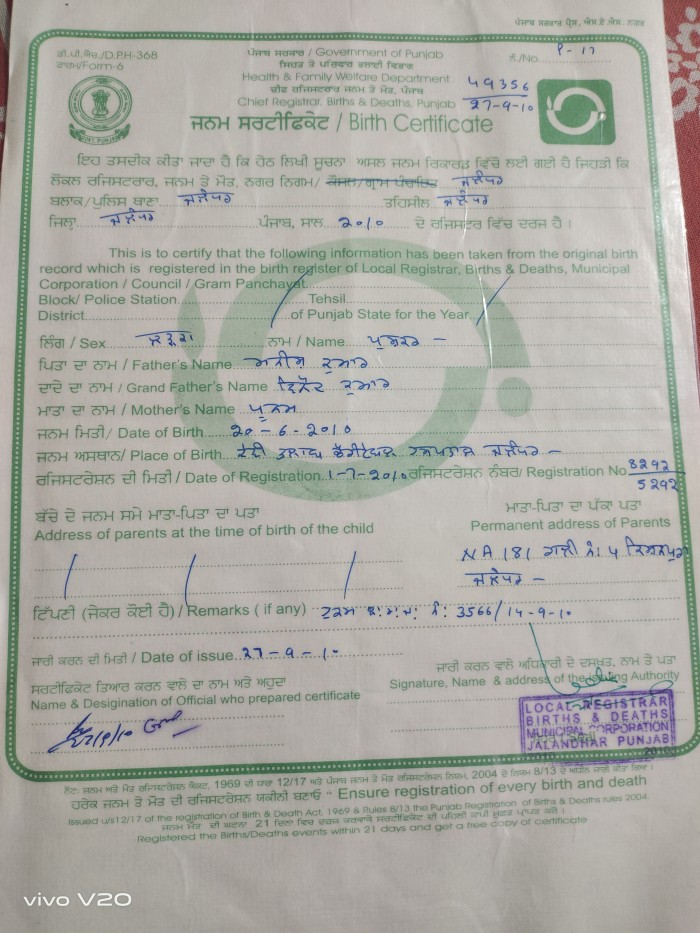 ਪੰਜਾਬ ਸਰਕਾਰ ਪ੍ਰੈਸ, ਐਸ.ਏ.ਐਸ. ਨਗਰ
ਡੀ.ਪੀ.ਐਚ./D.P.H-368
ਫਾਰਮ/Form-6
ਪੰਜਾਬ ਸਰਕਾਰ / Government of Punjab
ਸਿਹਤ ਤੇ ਪਰਿਵਾਰ ਭਲਾਈ ਵਿਭਾਗ
Health & Family Welfare Department
ਚੀਫ ਰਜਿਸਟਰਾਰ ਜਨਮ ਤੇ ਮੌਤ, ਪੰਜਾਬ
Chief Registrar, Births & Deaths, Punjab
ਨੰ./No. P-17
49356
27-9-10
ਜਨਮ ਸਰਟੀਫਿਕੇਟ / Birth Certificate
ਇਹ ਤਸਦੀਕ ਕੀਤਾ ਜਾਂਦਾ ਹੈ ਕਿ ਹੇਠ ਲਿਖੀ ਸੂਚਨਾ ਅਸਲ ਜਨਮ ਰਿਕਾਰਡ ਵਿੱਚੋਂ ਲਈ ਗਈ ਹੈ ਜਿਹੜੀ ਕਿ
ਲੋਕਲ ਰਜਿਸਟਰਾਰ, ਜਨਮ ਤੇ ਮੌਤ, ਨਗਰ ਨਿਗਮ/ ਕੌਂਸਲ/ਗ੍ਰਾਮ ਪੰਚਾਇਤ ਜਲੰਧਰ
ਬਲਾਕ/ਪੁਲਿਸ ਥਾਣਾ ਜਲੰਧਰ ਤਹਿਸੀਲ ਜਲੰਧਰ
ਜਿਲ੍ਹਾ ਜਲੰਧਰ ਪੰਜਾਬ, ਸਾਲ 2010 ਦੇ ਰਜਿਸਟਰ ਵਿੱਚ ਦਰਜ ਹੈ ।
This is to certify that the following information has been taken from the original birth
record which is registered in the birth register of Local Registrar, Births & Deaths, Municipal
Corporation / Council / Gram Panchayat
Block/ Police Station Tehsil
District of Punjab State for the Year
ਲਿੰਗ / Sex ਲੜਕਾ ਨਾਮ / Name
ਪਿਤਾ ਦਾ ਨਾਮ / Father's Name ਕੁਮਾਰ
ਦਾਦੇ ਦਾ ਨਾਮ / Grand Father's Name ਕੁਮਾਰ
ਮਾਤਾ ਦਾ ਨਾਮ / Mother's Name ਪੂਨਮ
ਜਨਮ ਮਿਤੀ/ Date of Birth 20-6-2010
ਜਨਮ ਅਸਥਾਨ/ Place of Birth ਦੇਵੀ ਤਲਾਬ ਚੈਰੀਟੇਬਲ ਹਸਪਤਾਲ ਜਲੰਧਰ -
ਰਜਿਸਟਰੇਸ਼ਨ ਦੀ ਮਿਤੀ / Date of Registration 1-7-2010 ਰਜਿਸਟਰੇਸ਼ਨ ਨੰਬਰ/ Registration No 8292
5292
ਬੱਚੇ ਦੇ ਜਨਮ ਸਮੇਂ ਮਾਤਾ-ਪਿਤਾ ਦਾ ਪਤਾ
Address of parents at the time of birth of the child
ਮਾਤਾ-ਪਿਤਾ ਦਾ ਪੱਕਾ ਪਤਾ
Permanent address of Parents
NA 181 ਗਲੀ ਨੰ: 4 ਕਿਸ਼ਨਪੁਰਾ
ਜਲੰਧਰ -
ਟਿੱਪਣੀ (ਜੇਕਰ ਕੋਈ ਹੈ) / Remarks ( if any) ਨੰ: 3566/14-9-10
ਜਾਰੀ ਕਰਨ ਦੀ ਮਿਤੀ / Date of issue 27-9-10
ਜਾਰੀ ਕਰਨ ਵਾਲੇ ਅਧਿਕਾਰੀ ਦੇ ਦਸਖਤ, ਨਾਮ ਤੇ ਪਤਾ
Signature, Name & address of the issuing Authority
ਸਰਟੀਫਿਕੇਟ ਤਿਆਰ ਕਰਨ ਵਾਲੇ ਦਾ ਨਾਮ ਅਤੇ ਅਹੁਦਾ
Name & Desigination of Official who prepared certificate
27/9/10
LOCAL REGISTRAR
BIRTHS & DEATHS
MUNICIPAL CORPORATION
JALANDHAR PUNJAB
ਨੋਟ: ਜਨਮ ਅਤੇ ਮੌਤ ਰਜਿਸਟਰੇਸ਼ਨ ਐਕਟ, 1969 ਦੀ ਧਾਰਾ 12/17 ਅਤੇ ਪੰਜਾਬ ਜਨਮ ਤੇ ਮੌਤ ਰਜਿਸਟਰੇਸ਼ਨ ਨਿਯਮ, 2004 ਦੇ ਨਿਯਮ 8/13 ਦੇ ਅਧੀਨ ਜਾਰੀ ਕੀਤਾ ਗਿਆ ।
ਹਰੇਕ ਜਨਮ ਤੇ ਮੌਤ ਦੀ ਰਜਿਸਟਰੇਸ਼ਨ ਯਕੀਨੀ ਬਣਾਓ " Ensure registration of every birth and death
Issued u/s12/17 of the registration of Birth & Death Act, 1969 & Rules 8/13 the Punjab Registration of Births & Deaths rules 2004.
ਜਨਮ ਮੌਤ ਦੀ ਘਟਨਾ 21 ਦਿਨਾਂ ਵਿੱਚ ਦਰਜ ਕਰਵਾਕੇ ਸਰਟੀਫਿਕੇਟ ਦੀ ਪਹਿਲੀ ਕਾਪੀ ਮੁਫਤ ਪ੍ਰਾਪਤ ਕਰੋ ।
Registered the Births/Deaths events within 21 days and get a free copy of certificate
vivo V20